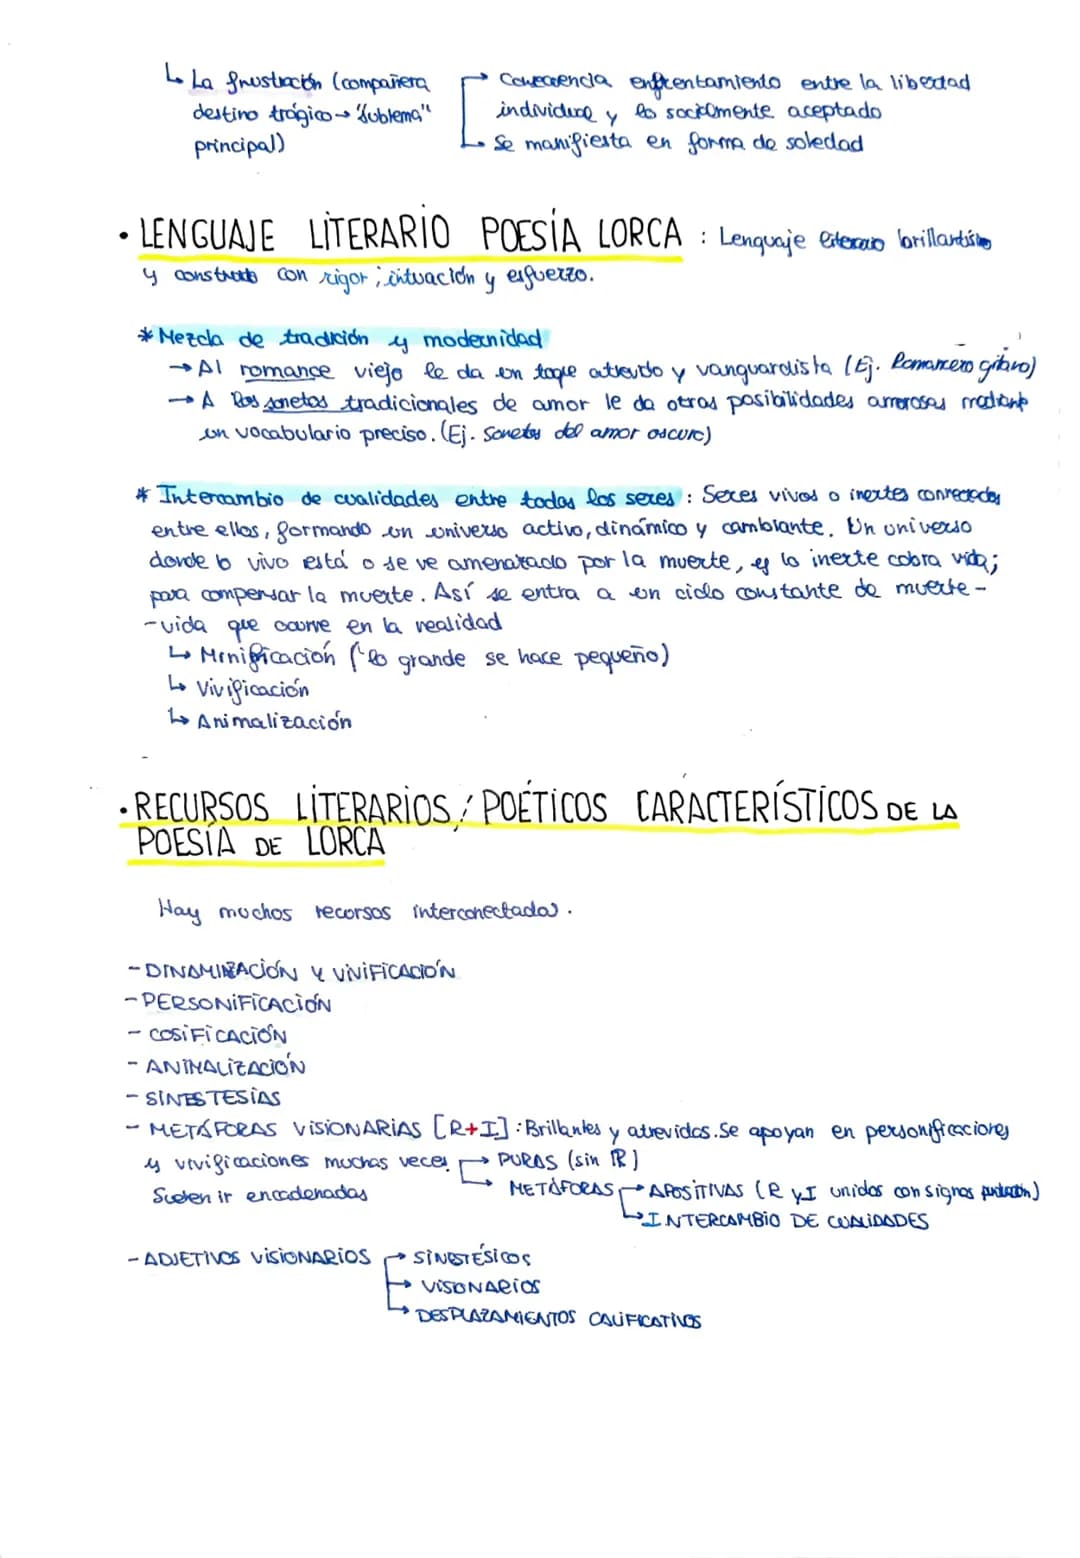 ↳ La frustración (compañera
destino trágico → "Subtema"
principal)
→ Consecuencia enfrentamiento entre la libertad
individual y lo socialmente aceptado
→ Se manifiesta en forma de soledad
• LENGUAJE LITERARIO POESÍA LORCA : Lenguaje literario brillantísimo
y construido con rigor, intuación y esfuerzo.
* Mezcla de tradición y modernidad
→ Al romance viejo le da un toque atrevido y vanguardista (Ej. Romancero gitano)
→ A los sonetos tradicionales de amor le da otras posibilidades amorosas mediante
un vocabulario preciso. (Ej. Sonetos del amor oscuro)
* Intercambio de cualidades entre todos los seres : Seres vivos o inertes conectados
entre ellos, formando un universo activo, dinámico y cambiante. Un universo
donde lo vivo está o se ve amenazado por la muerte, y lo inerte cobra vida;
para compensar la muerte. Así se entra a un ciclo constante de muerte -
- vida que ocurre en la realidad
↳ Minificación (lo grande se hace pequeño)
↳ Vivificación
↳ Animalización
• RECURSOS LITERARIOS / POÉTICOS CARACTERÍSTICOS DE LA
POESÍA DE LORCA
Hay muchos recursos interconectados.
- DINAMIZACIÓN Y VIVIFICACIÓN
- PERSONIFICACIÓN
- COSIFICACIÓN
- ANIMALIZACIÓN
- SINESTESIAS
- METÁFORAS VISIONARIAS [R+I] : Brillantes y atrevidas. Se apoyan en personificaciones
y vivificaciones muchas veces → PURAS (sin R)
Suelen ir encadenadas → METÁFORAS → APOSITIVAS (R y I unidas con signos puntuación)
→ INTERCAMBIO DE CUALIDADES
- ADJETIVOS VISIONARIOS → SINESTÉSICOS
→ VISONARIOS
→ DESPLAZAMIENTOS CALIFICATIVOS